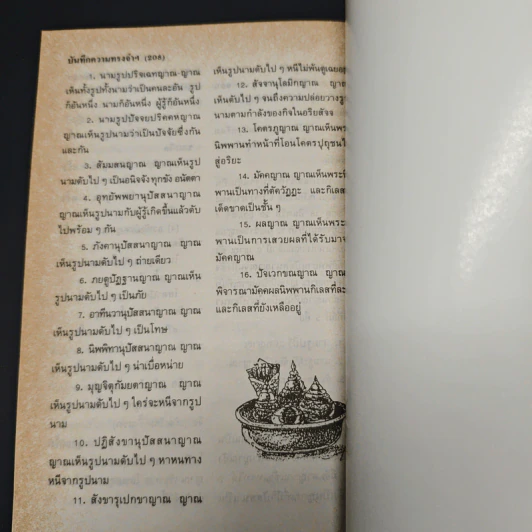 บันทึกความทรงจำฯ (208)
1. นามรูปปริจเฉทญาณ ญาณ
เห็นทั้งรูปทั้งนามว่าเป็นคนละอัน รูป
ก็อันหนึ่ง นามก็อันหนึ่ง ผู้รู้ก็อันหนึ่ง
2. นามรูปปัจจยปริคคหญาณ
ญาณเห็นรูปนามว่าเป็นปัจจัยซึ่งกัน
และกัน
3. สัมมสนญาณ ญาณเห็นรูป
นามดับไป ๆ เป็นอนิจจังทุกขัง อนัตตา
4. อุทยัพพยานุปัสสนาญาณ
ญาณเห็นรูปนามกับผู้รู้เกิดขึ้นแล้วดับ
ไปพร้อม ๆ กัน
5. ภังคานุปัสสนาญาณ ญาณ
เห็นรูปนามดับไป ๆ ถ่ายเดียว
6. ภยตูปัฏฐานญาณ ญาณเห็น
รูปนามดับไป ๆ เป็นภัย
7. อาทีนวานุปัสสนาญาณ ญาณ
เห็นรูปนามดับไป ๆ เป็นโทษ
8. นิพพิทานุปัสสนาญาณ ญาณ
เห็นรูปนามดับไป ๆ น่าเบื่อหน่าย
9. มุญจิตุกัมยตาญาณ ญาณ
เห็นรูปนามดับไป ๆ ใคร่จะหนีจากรูป
นาม
10. ปฏิสังขานุปัสสนาญาณ
ญาณเห็นรูปนามดับไป ๆ หาหนทาง
หนีจากรูปนาม
11. สังขารุเปกขาญาณ ญาณ
เห็นรูปนามดับไป ๆ หนีไม่พ้นดูเฉยอยู่
12. สัจจานุโลมิกญาณ ญาณ
เห็นดับไป ๆ จนถึงความปล่อยวางรูป
นามตามกำลังของกิจในอริยสัจจ
13. โคตรภูญาณ ญาณเห็นพระ
นิพพานทำหน้าที่โอนโคตรปุถุชน
สู่อริยะ
14. มัคคญาณ ญาณเห็นพระ
พานเป็นทางที่ตัดวัฏฏะ และกิเลส
เด็ดขาดเป็นชั้น ๆ
15. ผลญาณ ญาณเห็นพระ
พานเป็นการเสวยผลที่ได้รับมา
มัคคญาณ
16. ปัจเวกขณญาณ ญาณ
พิจารณามัคคผลนิพพานกิเลสที่ละ
และกิเลสที่ยังเหลืออยู่